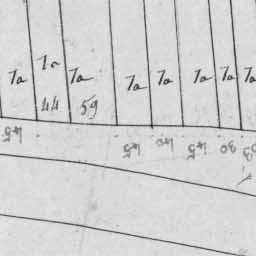 7a 7a 7a 7a 7a 7a 7a 7a
44 59
45 45 40 45 30